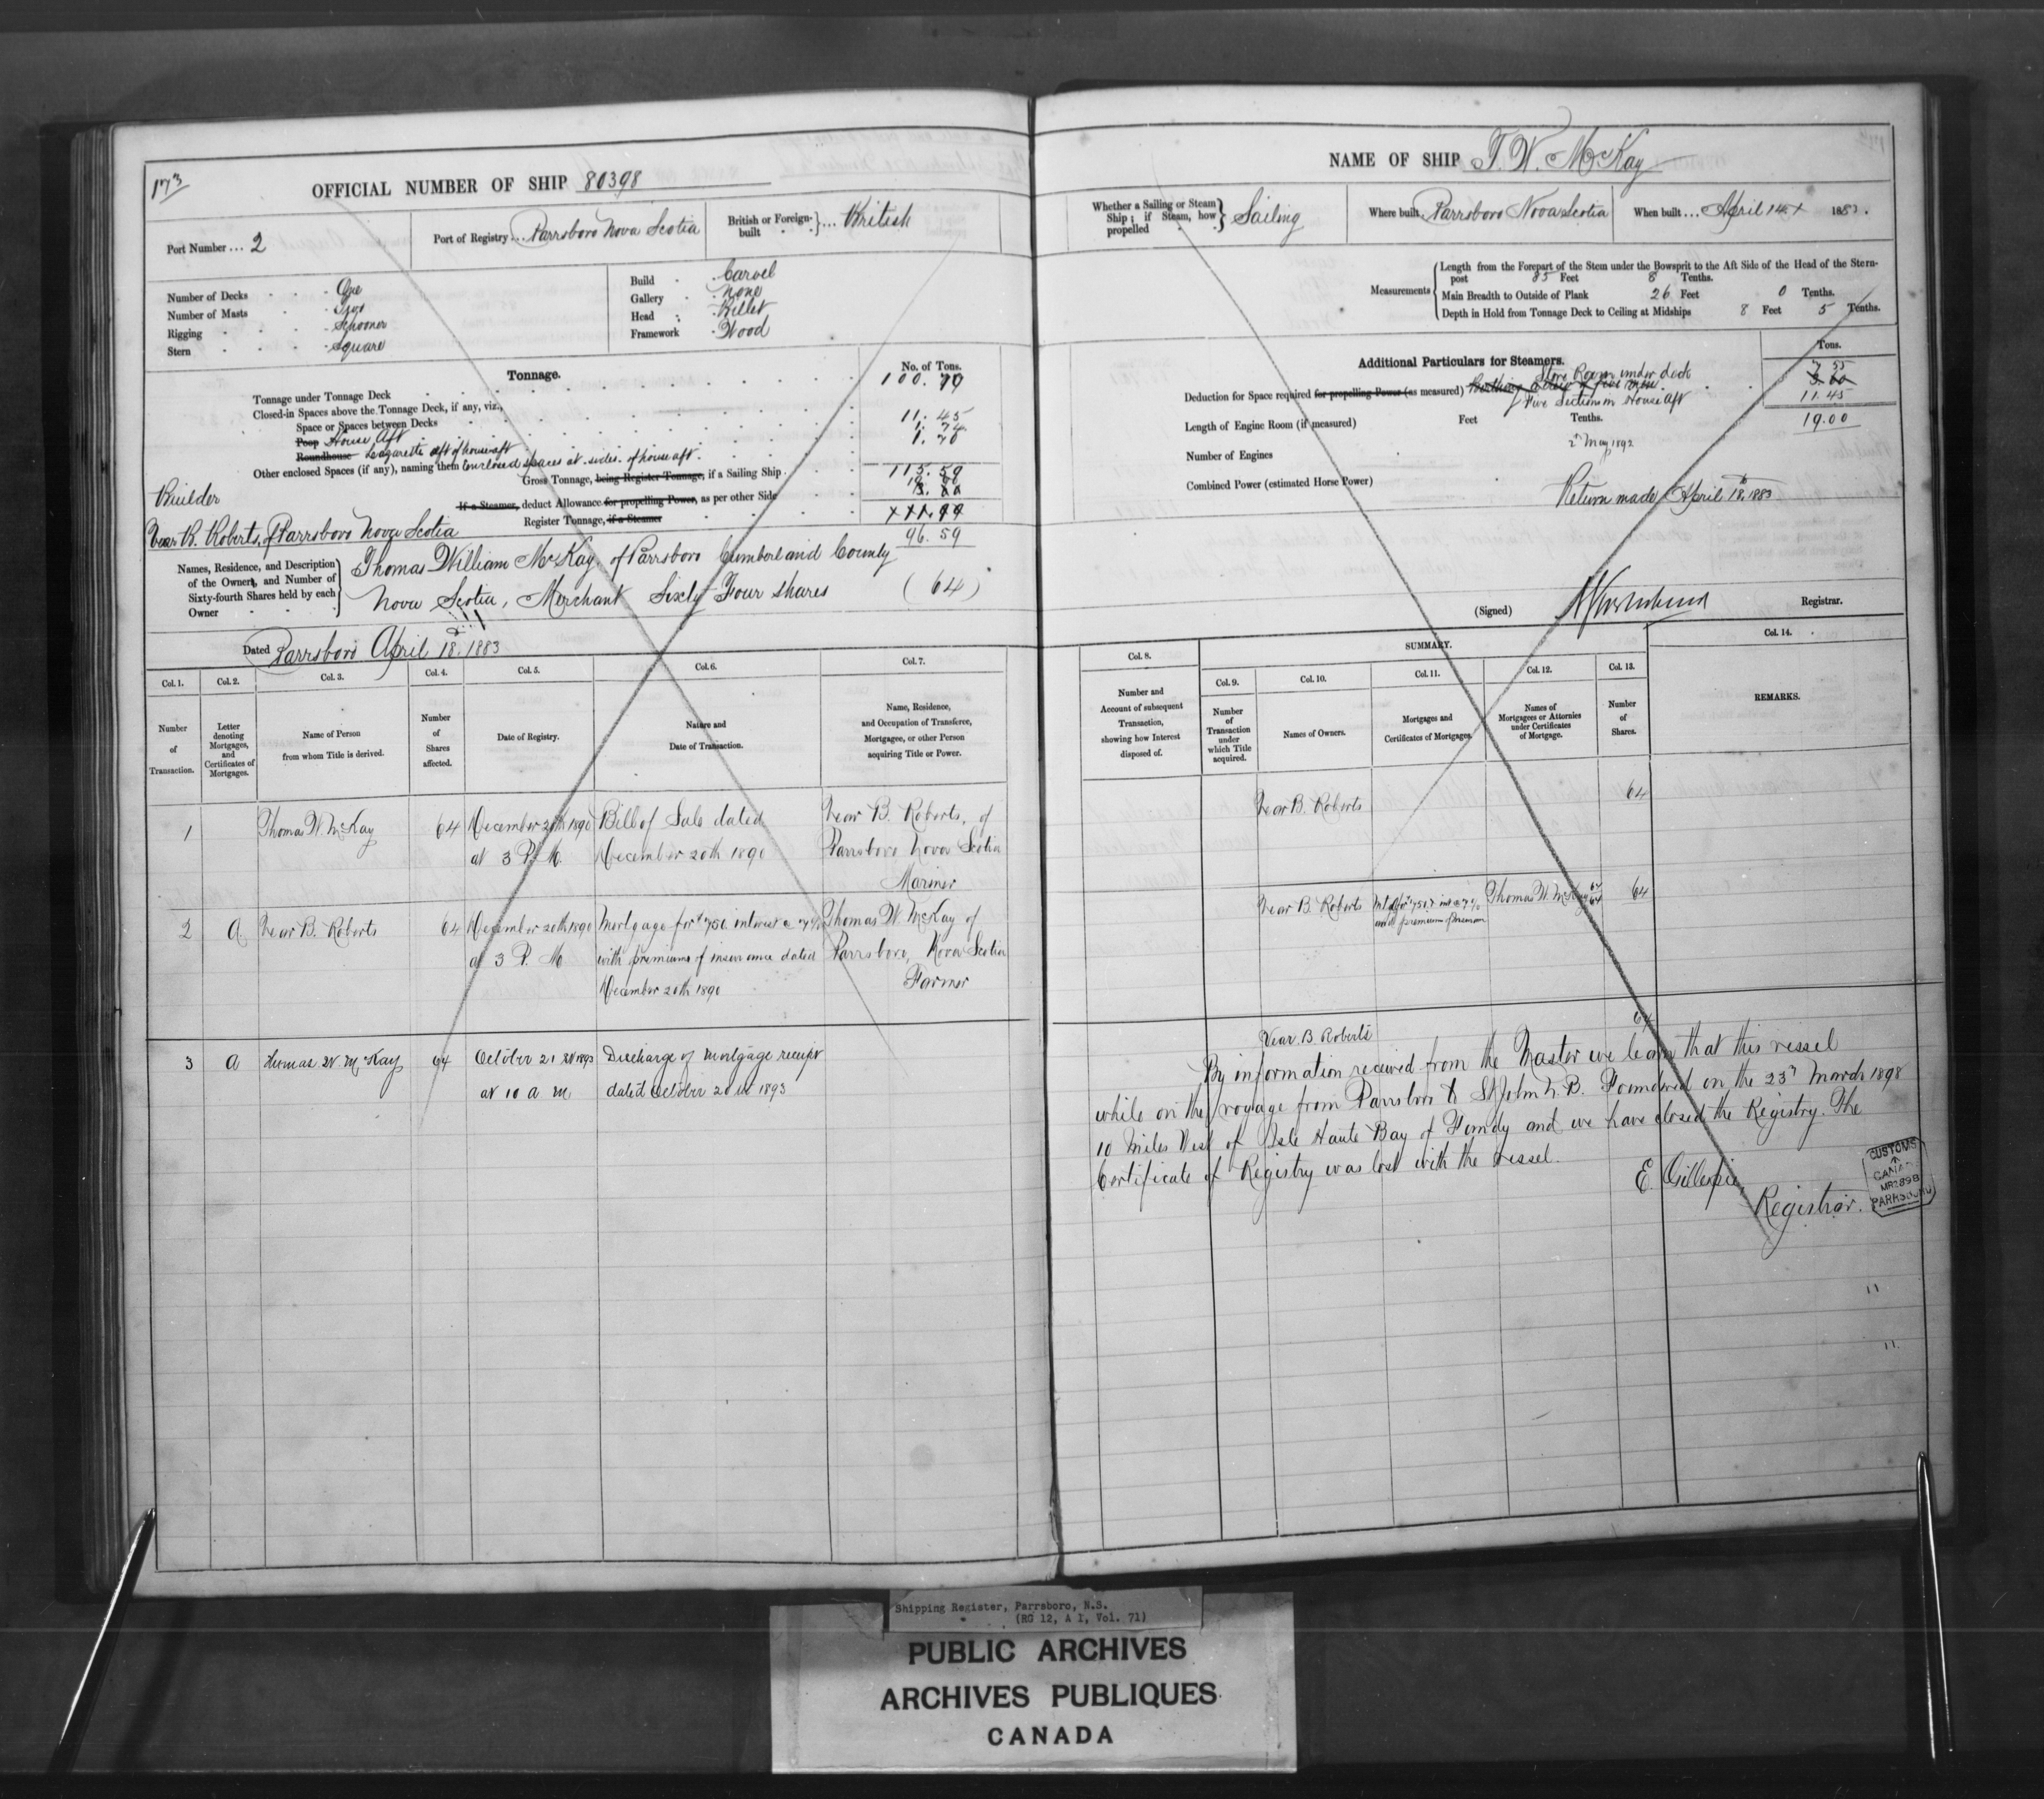 173
OFFICIAL NUMBER OF SHIP 80398
Port Number ... 2
Port of Registry ... Parrsboro Nova Scotia
British or Foreign-built ... British
Number of Decks One
Number of Masts Two
Rigging Schooner
Stern Square
Build Carvel
Gallery None
Head Billet
Framework Wood
Tonnage.
No. of Tons.
Tonnage under Tonnage Deck
Closed-in Spaces above the Tonnage Deck, if any, viz.,
Space or Spaces between Decks 11.45
Poop House Aft
Roundhouse Lazarette aft of house aft
Other enclosed Spaces (if any), naming them Enclosed spaces at sides of house aft.
Gross Tonnage, being Register Tonnage, if a Sailing Ship 115.59
If a Steamer, deduct Allowance for propelling Power, as per other Side
Register Tonnage, if a Steamer
96.59
Builder
B. Roberts, of Parrsboro Nova Scotia
Names, Residence, and Description of the Owners, and Number of Sixty-fourth Shares held by each Owner
Thomas William McKay of Parrsboro Cumberland County
Nova Scotia, Merchant Sixty Four shares (64)
Dated Parrsboro April 18. 1883
Col. 1. Col. 2. Col. 3. Col. 4. Col. 5. Col. 6. Col. 7.
Number of Transaction.
Letter denoting Mortgages, and Certificates of Mortgages.
Name of Person from whom Title is derived.
Number of Shares affected.
Date of Registry.
Nature and Date of Transaction.
Name, Residence, and Occupation of Transferee, Mortgagee, or other Person acquiring Title or Power.
1 Thomas W. McKay 64 December 20th 1890 Bill of Sale dated B. Roberts, of
at 3 P. M. December 20th 1890 Parrsboro Nova Scotia
Mariner
2 A B. Roberts 64 December 20th 1890 Mortgage for $750 interest @ 7% Thomas W. McKay of
at 3 P. M with premiums of insurance dated Parrsboro, Nova Scotia
December 20th 1890 Farmer
3 A Thomas W. McKay 64 October 21 1893 Discharge of Mortgage receipt
at 10 a m dated October 20 1893
NAME OF SHIP T. W. McKay
Whether a Sailing or Steam Ship; if Steam, how propelled Sailing
Where built Parrsboro Nova Scotia
When built ... April 14 1883.
Measurements
Length from the Forepart of the Stem under the Bowsprit to the Aft Side of the Head of the Stern-
post 85 Feet 8 Tenths.
Main Breadth to Outside of Plank 26 Feet 0 Tenths.
Depth in Hold from Tonnage Deck to Ceiling at Midships 8 Feet 5 Tenths.
Additional Particulars for Steamers.
Tons.
Store Room under deck 7 55
Deduction for Space required for propelling Power (as measured)
Five Seamen in House Aft 11.45
Length of Engine Room (if measured) Feet Tenths. 19.00
Number of Engines
2 May 1892
Combined Power (estimated Horse Power)
Return made April 18th 1883
(Signed) Registrar.
Col. 8.
SUMMARY.
Col. 9. Col. 10. Col. 11. Col. 12. Col. 13. Col. 14.
Number and Account of subsequent Transaction, showing how Interest disposed of.
Number of Transaction under which Title acquired.
Names of Owners.
Mortgages and Certificates of Mortgages.
Names of Mortgagees or Attornies under Certificates of Mortgage.
Number of Shares.
REMARKS.
B. Roberts 64
B. Roberts Thomas W. McKay 64/64 64
B Roberts 64
By information received from the Master we learn that this vessel
while on the voyage from Parrsboro to St John N. B. Foundered on the 23rd March 1898
10 Miles West of Isle Haute Bay of Fundy and we have closed the Registry. The
Certificate of Registry was lost with the vessel.
E. Gillespie
Registrar.
CUSTOMS
CANADA
PARRSBORO
Shipping Register, Parrsboro, N.S.
(RG 12, A 1, Vol. 71)
PUBLIC ARCHIVES
ARCHIVES PUBLIQUES
CANADA